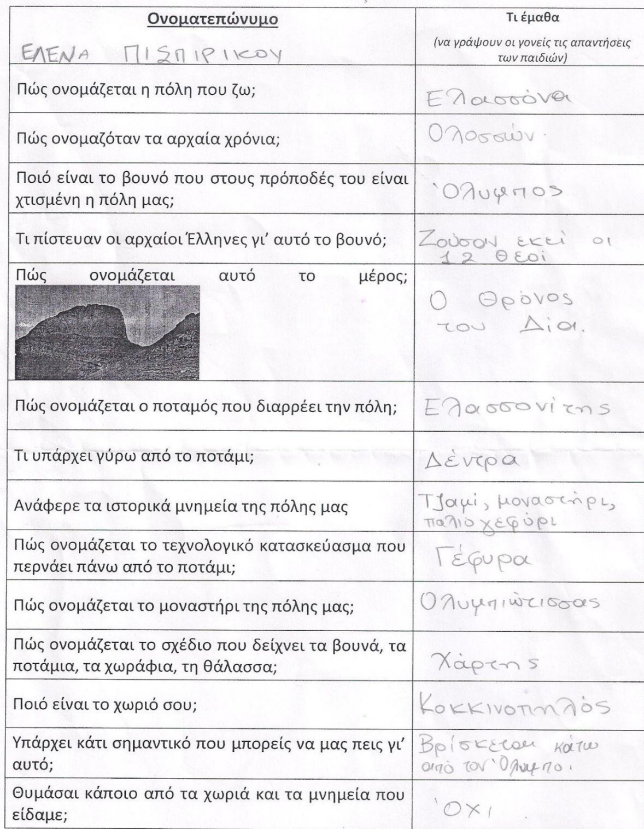 Ονοματεπώνυμο
Τι έμαθα
(να γράψουν οι γονείς τις απαντήσεις
των παιδιών)
ΕΛΕΝΑ ΠΙΣΠΙΡΙΚΟΥ
Πώς ονομάζεται η πόλη που ζω;
Ελασσόνα
Πώς ονομαζόταν τα αρχαία χρόνια;
Ολοσσών.
Ποιό είναι το βουνό που στους πρόποδές του είναι
χτισμένη η πόλη μας;
Όλυμπος
Τι πίστευαν οι αρχαίοι Έλληνες γι' αυτό το βουνό;
Ζούσαν εκεί οι
12 θεοί
Πώς ονομάζεται αυτό το μέρος;
Ο Θρόνος
του Δία.
Πώς ονομάζεται ο ποταμός που διαρρέει την πόλη;
Ελασσονίτης
Τι υπάρχει γύρω από το ποτάμι;
Δέντρα
Ανάφερε τα ιστορικά μνημεία της πόλης μας
Τζαμί, μοναστήρι,
παλιό γεφύρι
Πώς ονομάζεται το τεχνολογικό κατασκεύασμα που
περνάει πάνω από το ποτάμι;
Γέφυρα
Πώς ονομάζεται το μοναστήρι της πόλης μας;
Ολυμπιώτισσας
Πώς ονομάζεται το σχέδιο που δείχνει τα βουνά, τα
ποτάμια, τα χωράφια, τη θάλασσα;
Χάρτης
Ποιό είναι το χωριό σου;
Κοκκινοπηλός
Υπάρχει κάτι σημαντικό που μπορείς να μας πεις γι'
αυτό;
Βρίσκεται κάτω
από τον Όλυμπο.
Θυμάσαι κάποιο από τα χωριά και τα μνημεία που
είδαμε;
ΌΧΙ